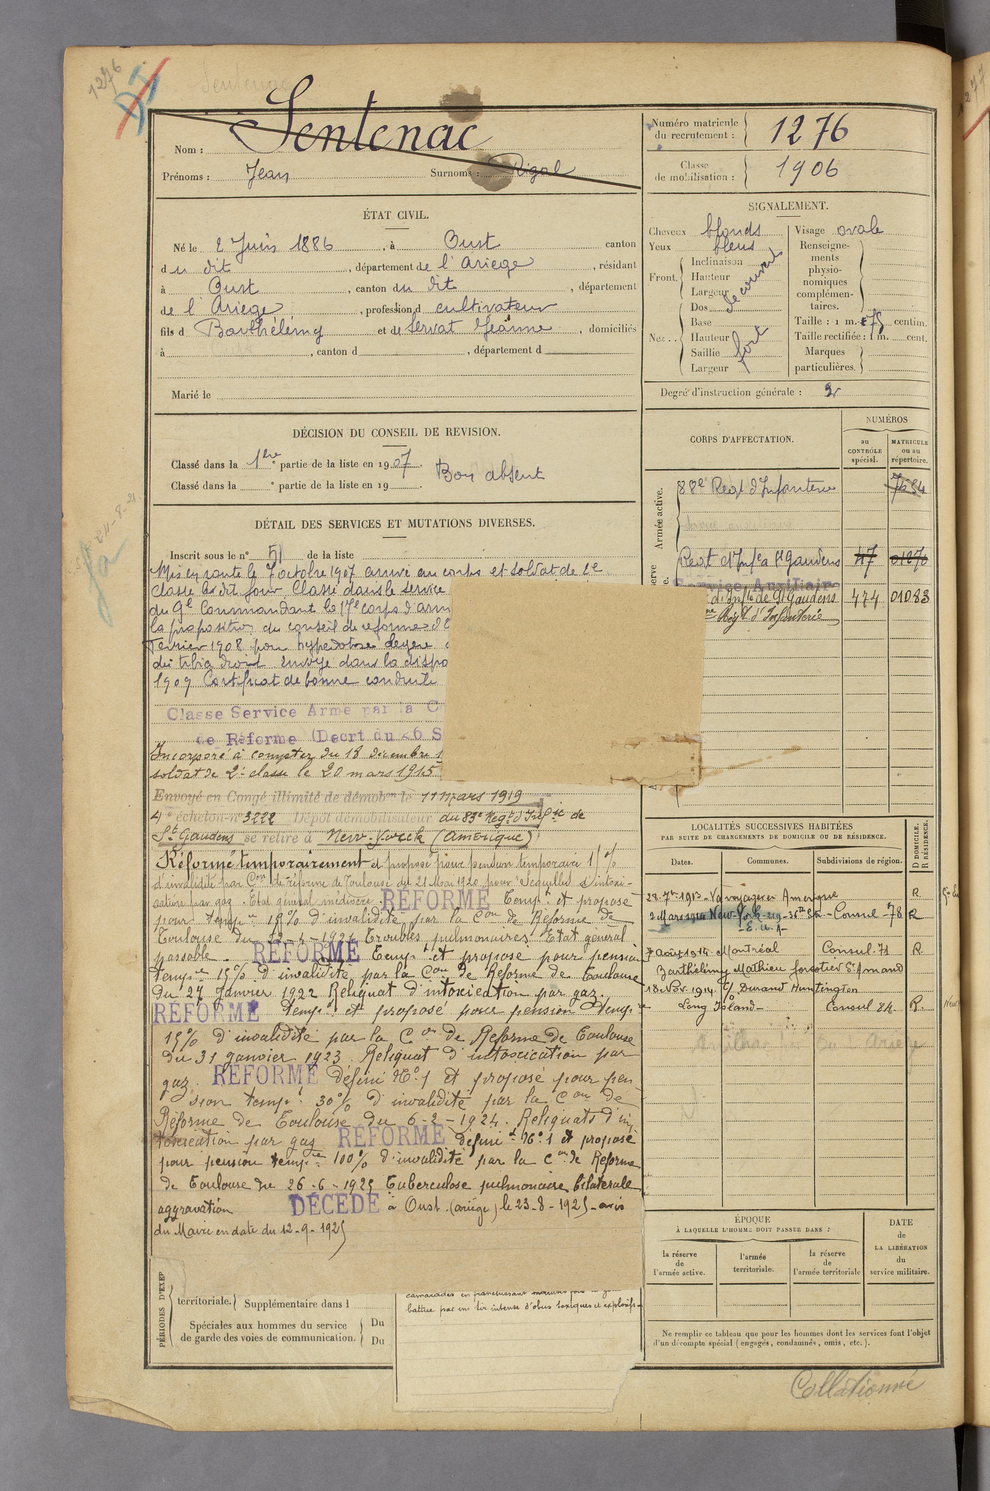 1276
Nom : Sentenac
Prénoms : Jean Surnoms : Rigal
Numéro matricule du recrutement : 1276
Classe de mobilisation : 1906
ÉTAT CIVIL.
Né le 2 Juin 1886, à Oust canton
du dit, département de l'Ariège, résidant
à Oust, canton du dit, département
de l'Ariège, profession d cultivateur
fils d Barthélémy et de Servat Jeanne, domiciliés
à , canton d , département d
Marié le
SIGNALEMENT.
Cheveux blonds
Yeux bleus
Front. Inclinaison
Hauteur
Largeur
Nez.. Dos
Base
Hauteur
Saillie
Largeur
fort
Visage ovale
Renseignements physionomiques complémentaires.
Taille : 1 m. 78 centim.
Taille rectifiée : 1 m. cent.
Marques particulières.
Degré d'instruction générale : 2
DÉCISION DU CONSEIL DE REVISION.
Classé dans la 1ère partie de la liste en 1907. Bon absent
Classé dans la e partie de la liste en 19
DÉTAIL DES SERVICES ET MUTATIONS DIVERSES.
Inscrit sous le n° 51 de la liste
Mis en route le 7 octobre 1907 arrivé au corps et soldat de 2e
classe le dit jour. Classé dans le service
du Gl Commandant le 17e corps d'arm
la proposition du conseil de réforme d
Février 1908 pour
du tibia droit. Envoyé dans la dispo
1909 Certificat de bonne conduite
Classé Service Armé par la C
de Réforme (Décrt du 26 S
Incorporé à compter du 18 décembre 1
soldat de 2e classe le 20 mars 1915
Envoyé en Congé illimité de démobon le 11 mars 1919
4e échelon n° 3222 Dépôt démobilisateur du 83e Régt d'Infie de
St Gaudens se retire à New-Yorck (Amérique)
Réformé temporairement et proposé pour pension temporaire
d'invalidité par Con de réforme de Toulouse du 21 Mai 1920 pour Séquelles d'intoxi-
cation par gaz. Etat général médiocre RÉFORMÉ Tempt et proposé
pour temp 15% d'invalidité par la Con de Réforme de
Toulouse du 1921 Troubles pulmonaires Etat général
passable. RÉFORMÉ Tempt et proposé pour pension
temp 15% d'invalidité par la Con de Réforme de Toulouse
du 27 Janvier 1922 Reliquat d'intoxication par gaz.
RÉFORMÉ Tempt et proposé pour pension temp
15% d'invalidité par la Con de Réforme de Toulouse
du 31 Janvier 1923. Reliquat d'intoxication par
gaz. RÉFORMÉ défini N° 1 et proposé pour pen
sion temp 30% d'invalidité par la Con de
Réforme de Toulouse du 6-2-1924. Reliquats d'in
toxication par gaz RÉFORMÉ défini N° 1 et proposé
pour pension tempre 100% d'invalidité par la Con de Réforme
de Toulouse du 26-6-1925 Tuberculose pulmonaire bilatérale
aggravation DÉCÉDÉ à Oust (ariège) le 23-8-1925 avis
du Maire en date du 12-9-1925
CORPS D'AFFECTATION.
NUMÉROS
au CONTRÔLE spécial.
MATRICULE ou au répertoire.
Armée active.
88e Regt d'Infanterie
Regt d'Infie St Gaudens 47 01270
Service Auxiliaire
d'Infie de St Gaudens 474 01083
Régt d'Infanterie
LOCALITÉS SUCCESSIVES HABITÉES
PAR SUITE DE CHANGEMENTS DE DOMICILE OU DE RÉSIDENCE.
Dates. Communes. Subdivisions de région. D DOMICILE. R RÉSIDENCE.
Va voyager en Amérique R
New-York Consul 78 R
E. U. A
7 août 1914 Montréal Consul 71 R
Barthélémy Mathieu forestier St Armand
18 Nov 1914 C/ Durand Huntington
Long Island Consul 84 R.
ÉPOQUE
À LAQUELLE L'HOMME DOIT PASSER DANS :
la réserve de l'armée active.
l'armée territoriale.
la réserve de l'armée territoriale
DATE de LA LIBÉRATION du service militaire.
Ne remplir ce tableau que pour les hommes dont les services font l'objet
d'un décompte spécial (engagés, condamnés, omis, etc.).
PÉRIODES D'EXER
territoriale. Supplémentaire dans l
Spéciales aux hommes du service de garde des voies de communication.
Du
Du
battue par un tir intense d'obus toxiques et explosifs
Collationné